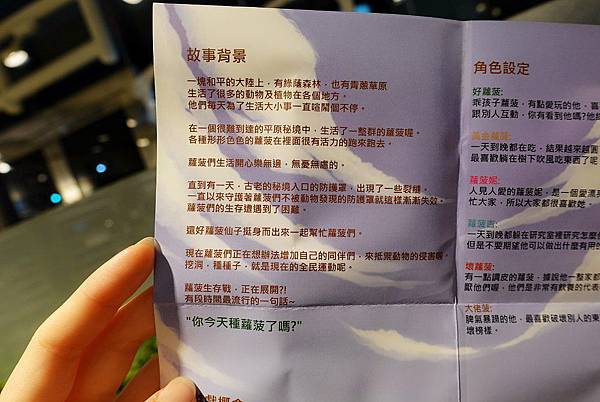 故事背景
一塊和平的大陸上，有綠蔭森林，也有青蔥草原
生活了很多的動物及植物在各個地方。
他們每天為了生活大小事一直喧鬧個不停。
在一個很難到達的平原秘境中，生活了一整群的蘿菠喔。
各種形形色色的蘿菠在裡面很有活力的跑來跑去。
蘿菠們生活開心樂無邊，無憂無慮的。
直到有一天，古老的秘境入口的防護罩，出現了一些裂縫。
一直以來守護著蘿菠們不被動物發現的防護罩就這樣漸漸失效。
蘿菠們的生存遭遇到了困難。
還好蘿菠仙子挺身而出來一起幫忙蘿菠們。
現在蘿菠們正在想辦法增加自己的同伴們，來抵禦動物的侵害喔。
挖洞，種種子，就是現在的全民運動呢。
蘿菠生存戰，正在展開?!
有段時間最流行的一句話~
"你今天種蘿菠了嗎?"
角色設定
好蘿菠:
乖孩子蘿菠，有點愛玩的他，喜
跟別人互動，你有看到他嗎?他
黃金蘿菠:
一天到晚都在吃，結果越來越圓
最喜歡躺在樹下吹風吃東西了呢
蘿菠妮:
人見人愛的蘿菠妮，是一個愛漂
忙大家，所以大家都很喜歡她。
蘿菠吉:
一天到晚都躲在研究室裡研究怎麼
但是不要期望他可以做出什麼有用
壞蘿菠:
有一點調皮的蘿菠，據說他一整家都
厭他們喔，他們是非常有飲養的代表
大佬菠:
脾氣暴躁的他，最喜歡破壞別人的東
壞榜樣。